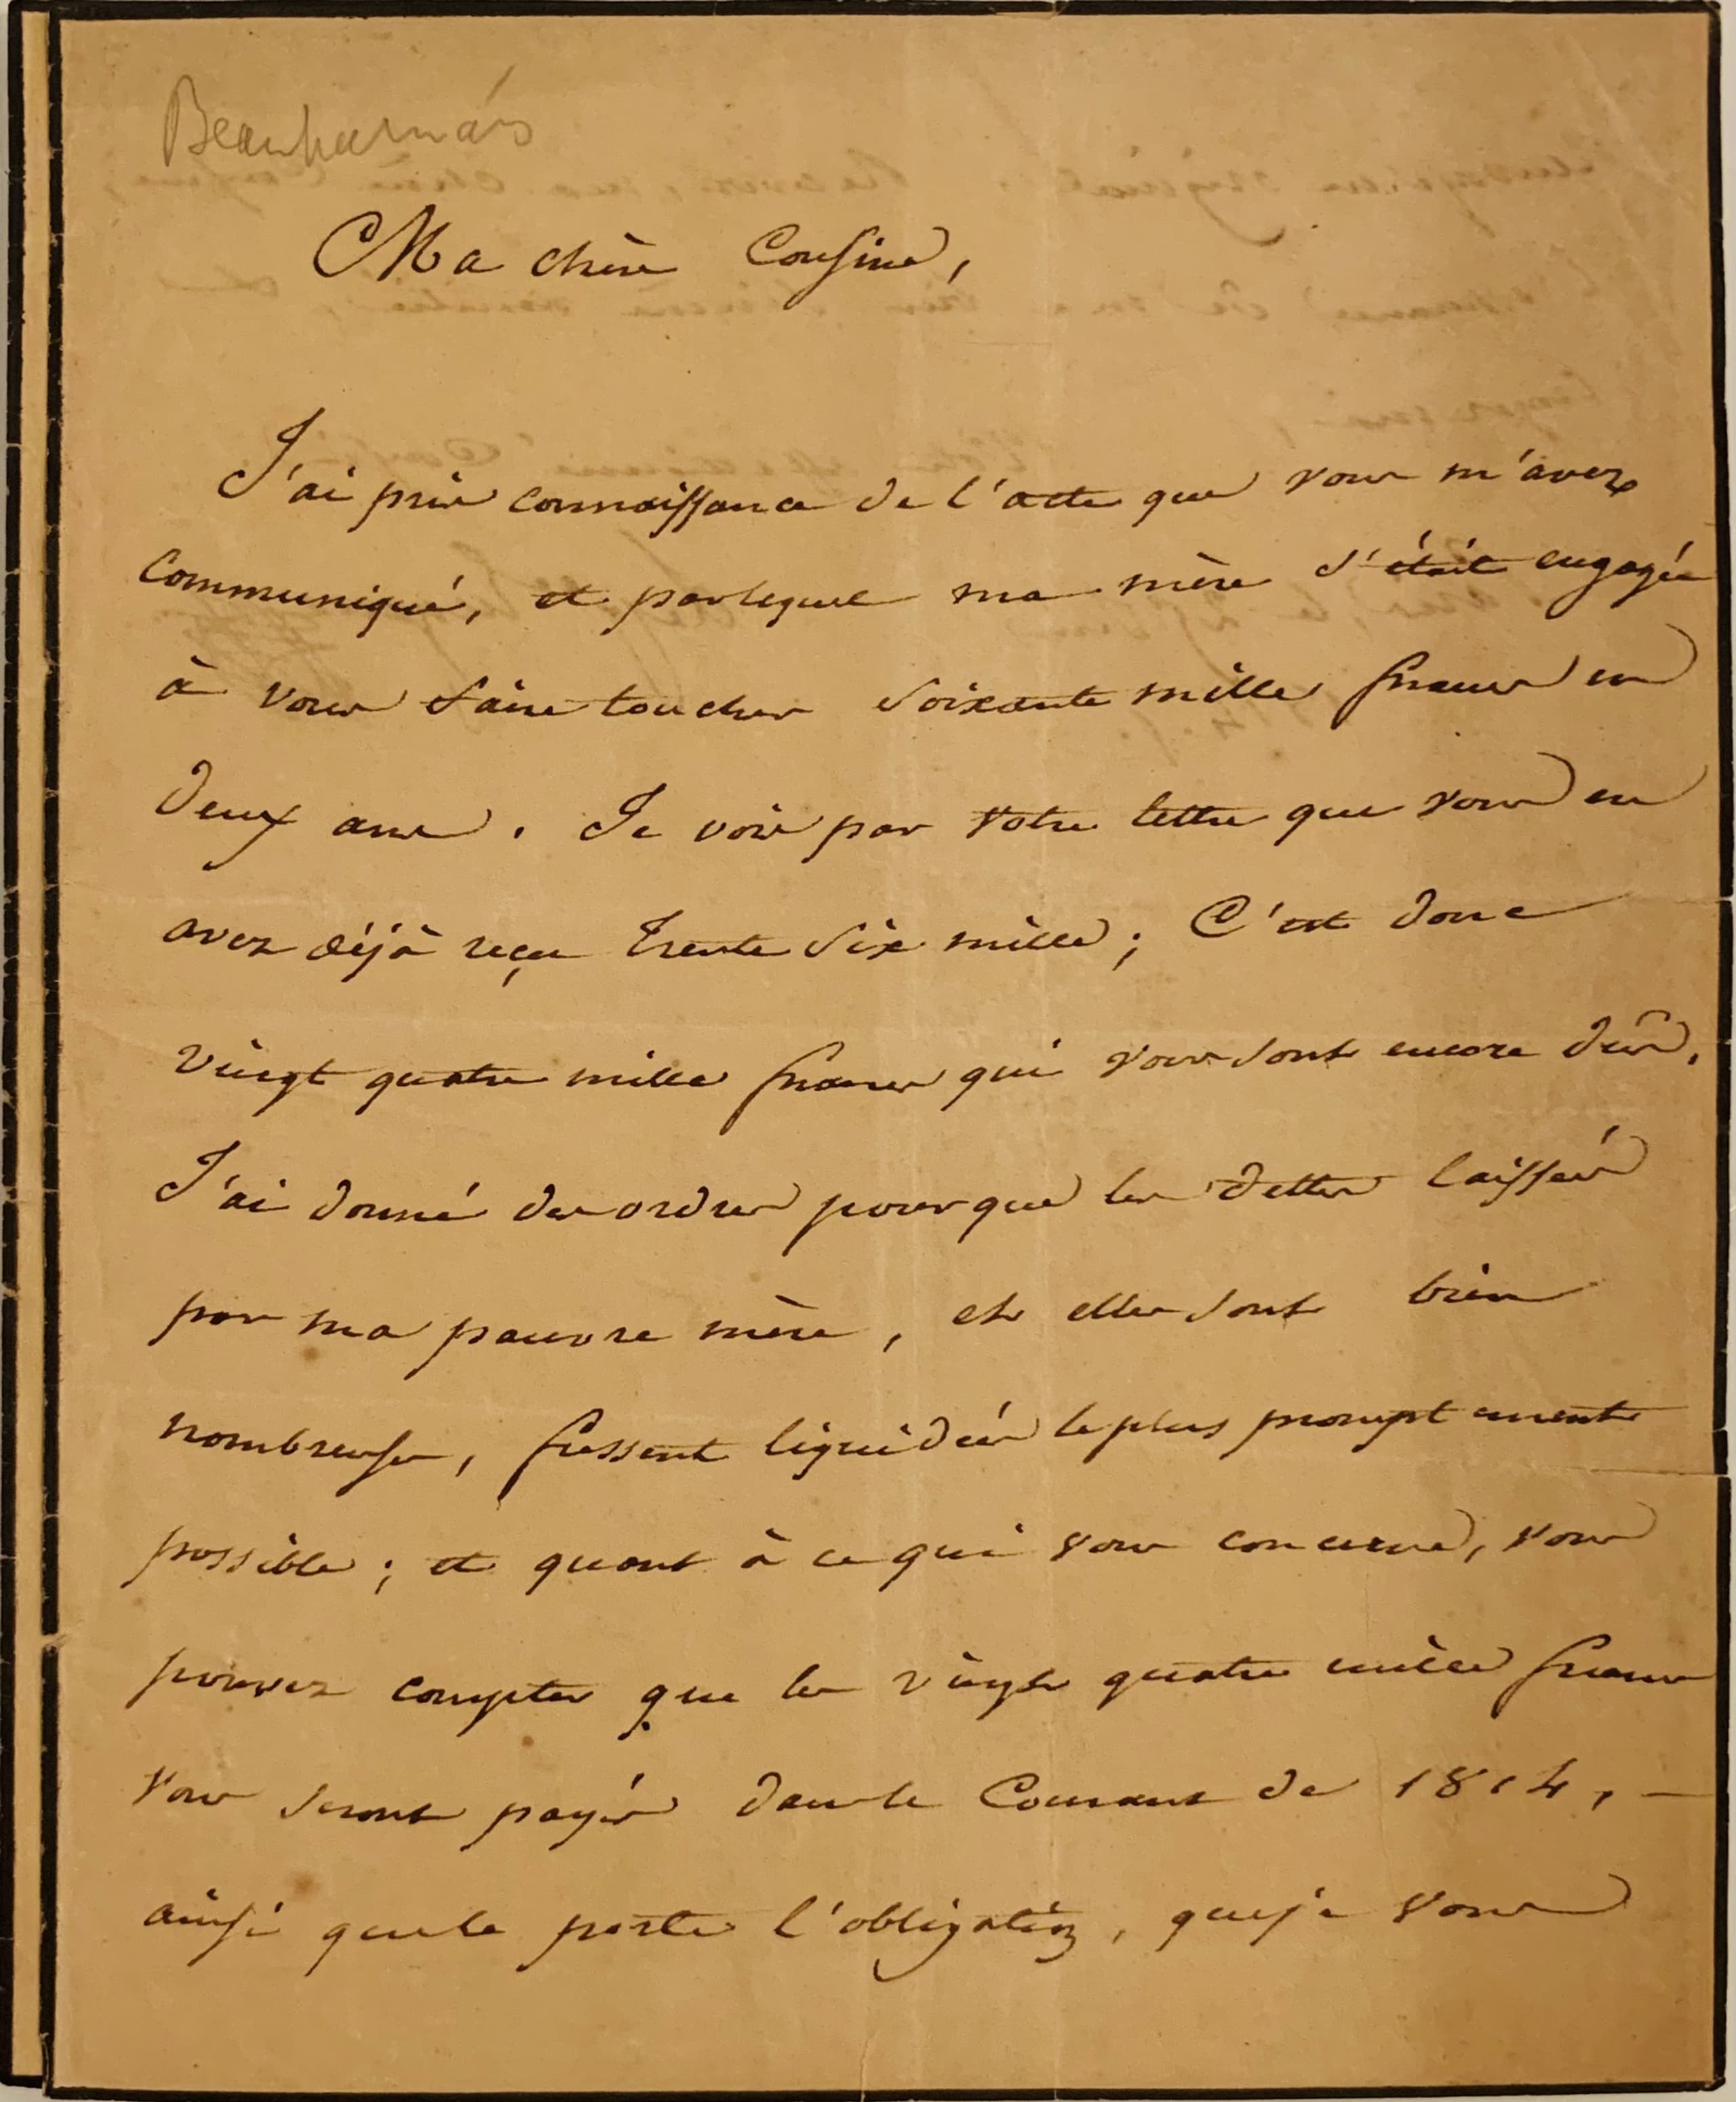 Beauharnais
Ma chère Cousine,
J'ai pris connaissance de l'acte que vous m'avez
communiqué, et par lequel ma mère s'était engagée
à vous faire toucher soixante mille francs en
deux ans. Je vois par votre lettre que vous en
avez déjà reçu trente six mille; C'est donc
vingt quatre mille francs qui vous sont encore dûs.
J'ai donné des ordres pour que les dettes laissées
par ma pauvre mère, et elles sont bien
nombreuses, fussent liquidées le plus promptement
possible; et quant à ce qui vous concerne, vous
pouvez compter que les vingt quatre mille francs
vous seront payés dans le Courant de 1814, —
ainsi que le porte l'obligation, que je vous